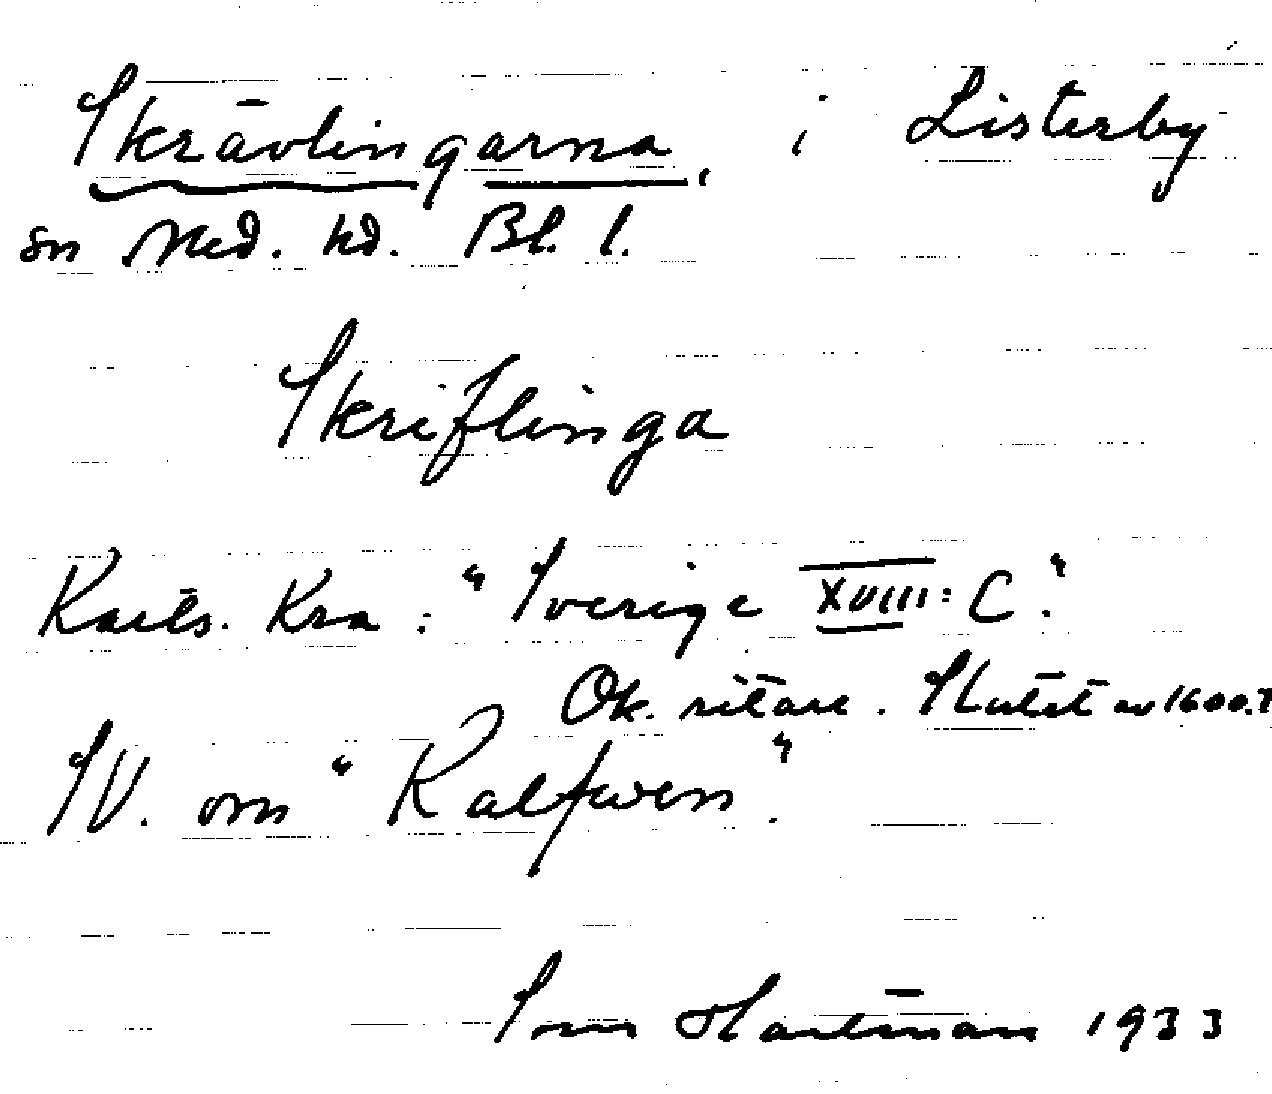 Skrävlingarna, i Listerby
sn Med. hd. Bl. l.
Skriflinga
Karls. Kra: "Sverige XVIII: C."
Ok. ritare. Slutet av 1600.t
SV. om "Kalfwen".
Sven Hartman 1933